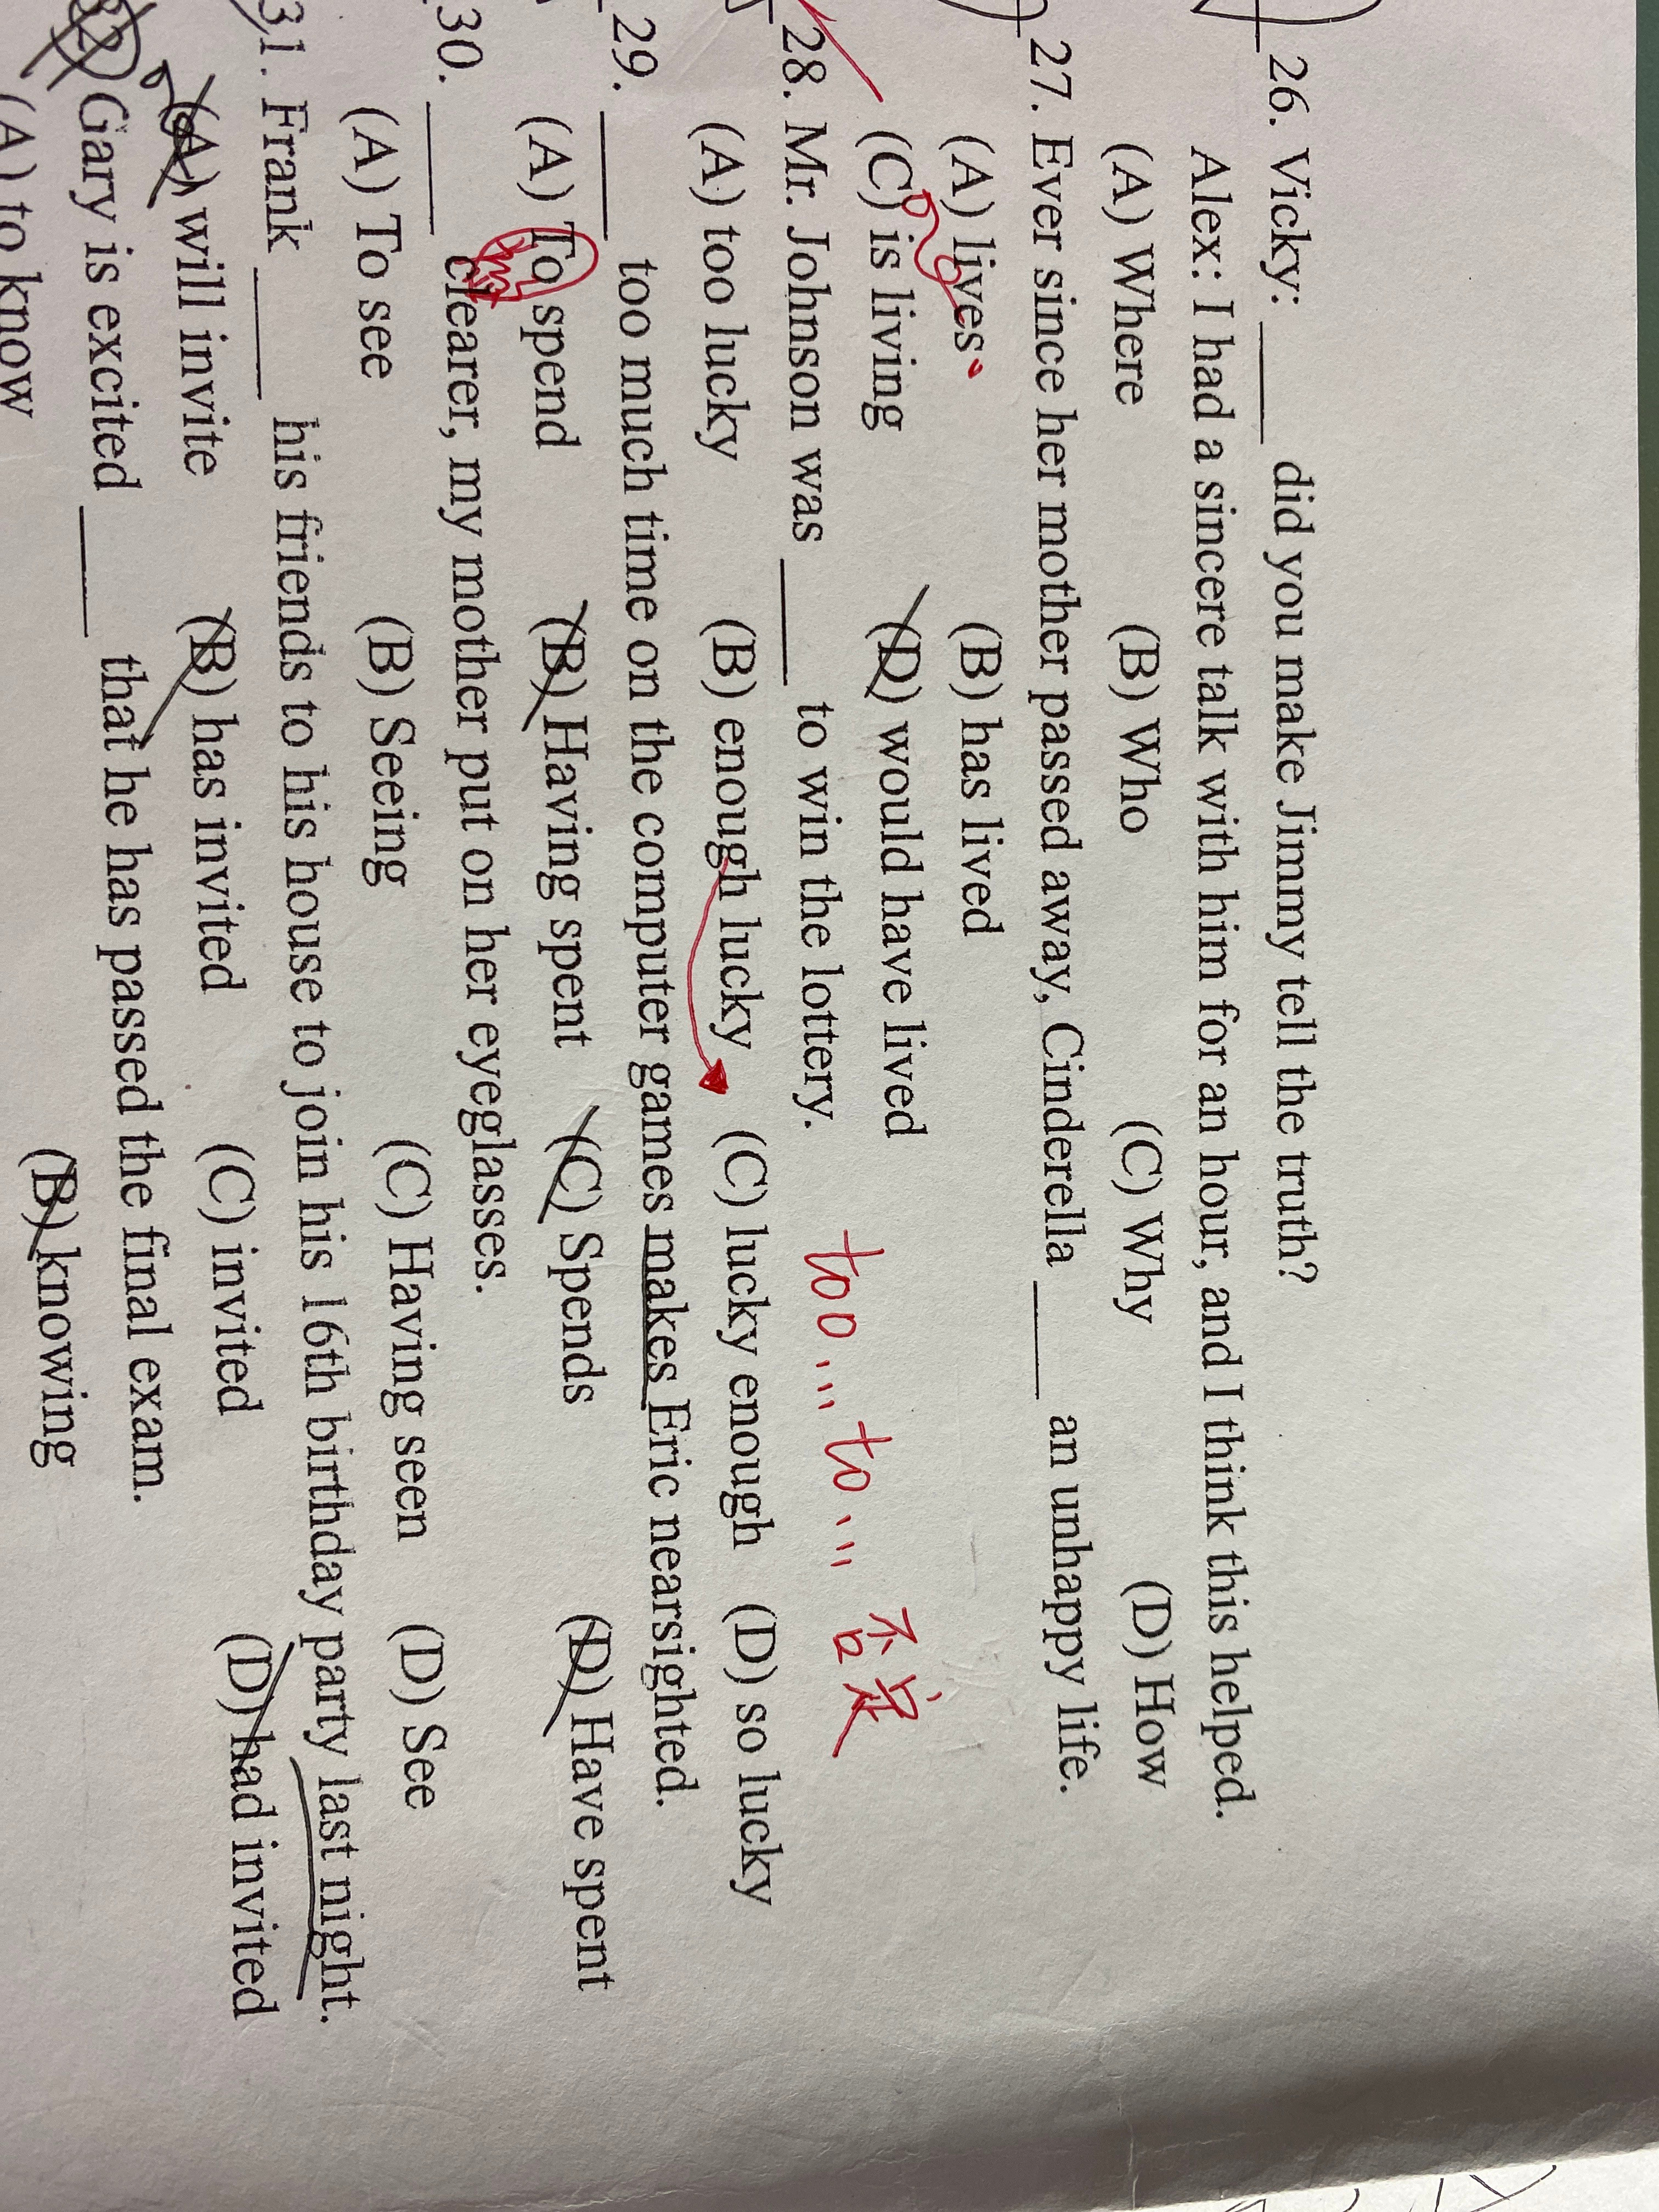 26. Vicky: _____ did you make Jimmy tell the truth?
Alex: I had a sincere talk with him for an hour, and I think this helped.
(A) Where (B) Who (C) Why (D) How
27. Ever since her mother passed away, Cinderella _____ an unhappy life.
(A) lives (B) has lived
(C) is living (D) would have lived
28. Mr. Johnson was _____ to win the lottery.
too ... to ... 否定
(A) too lucky (B) enough lucky (C) lucky enough (D) so lucky
29. _____ too much time on the computer games makes Eric nearsighted.
(A) To spend (B) Having spent (C) Spends (D) Have spent
30. _____ clearer, my mother put on her eyeglasses.
(A) To see (B) Seeing (C) Having seen (D) See
31. Frank _____ his friends to his house to join his 16th birthday party last night.
(A) will invite (B) has invited (C) invited (D) had invited
32. Gary is excited _____ that he has passed the final exam.
(A) to know (B) knowing